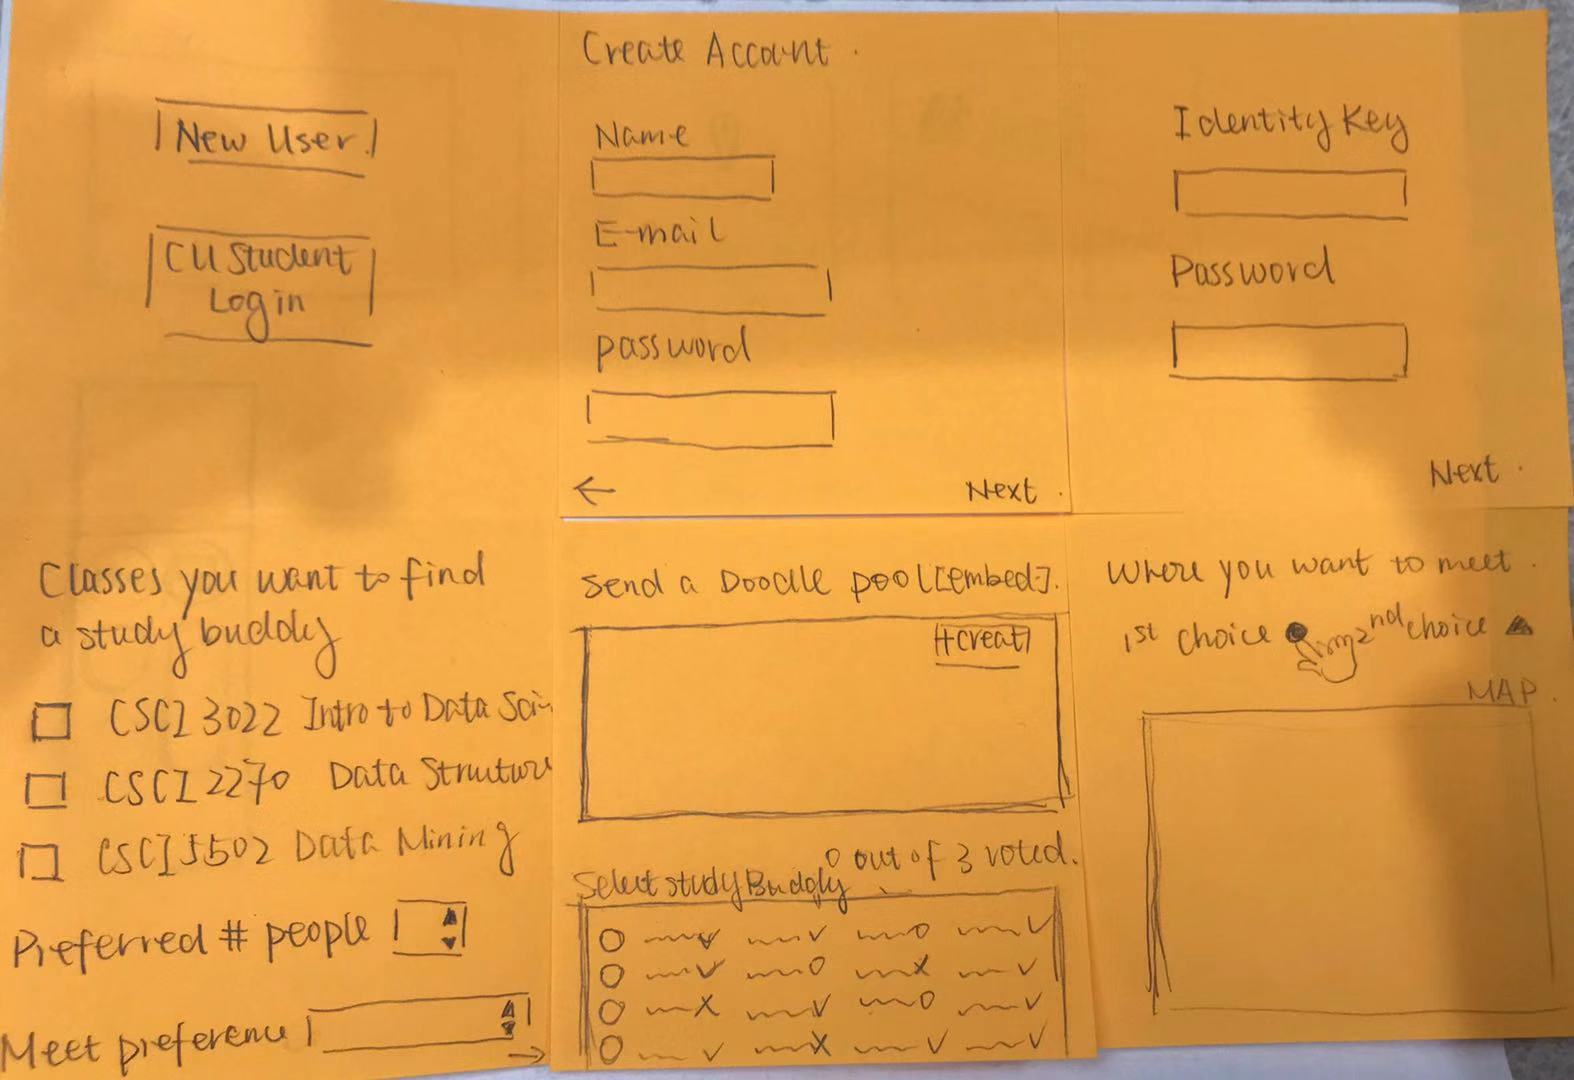 New User
CU Student
Login
Create Account
Name
E-mail
password
Next
Identity Key
Password
Next
Classes you want to find
a study buddy
CSCI 3022 Intro to Data Sci
CSCI 2270 Data Structure
CSCI 5502 Data Mining
Preferred # people
Meet preference
Send a Doodle pool [embed].
+creat
0 out of 3 voted.
Select study Buddy
Where you want to meet.
1st choice 2nd choice
MAP